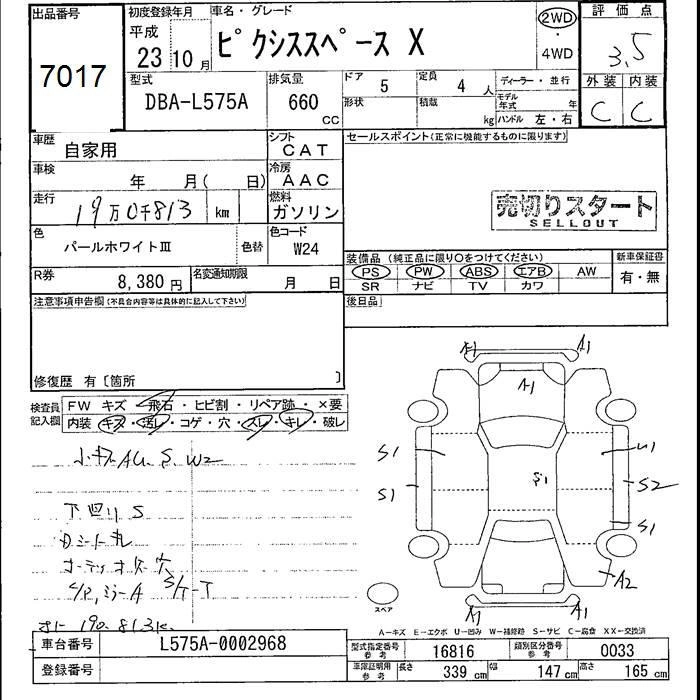 出品番号
7017
初度登録年月
平成
23 10 月
車名・グレード
ピクシススペース X
2WD
4WD
評価点
3.5
外装 内装
C C
型式
DBA-L575A
排気量
660
CC
ドア
5
定員
4 人
形状
積載
kg
ディーラー・並行
モデル年式 年
ハンドル 左・右
車歴
自家用
シフト
CAT
車検
年 月( 日)
冷房
AAC
走行
19万0千813 km
燃料
ガソリン
色
パールホワイトⅢ
色替
色コード
W24
R券
8,380 円
名変通知期限
月 日
セールスポイント(正常に機能するものに限ります)
売切りスタート
SELLOUT
装備品(純正品に限り○をつけてください)
PS PW ABS エアB AW
SR ナビ TV カワ
新車保証書
有・無
後日品
注意事項申告欄(不具合内容等は具体的に記入して下さい)
修復歴 有〔箇所 〕
検査員記入欄
FW キズ・飛石・ヒビ割・リペア跡・×要
内装 キズ・汚レ・コゲ・穴・スレ・キレ・破レ
小キズAU. S. W2
下回り S
オーディオ欠穴
S/P,ミラーA S/T-T
190.813K
A1 A1
A1
S1 U1
S1 S1 S2
S1
A2
A1 A1
スペア
A-キズ E-エクボ U-凹み W-補修跡 S-サビ C-腐食 XX-交換済
車台番号
L575A-0002968
登録番号
型式指定番号 参考
16816
類別区分番号 参考
0033
車庫証明用 参考
長さ 339 cm 幅 147 cm 高さ 165 cm